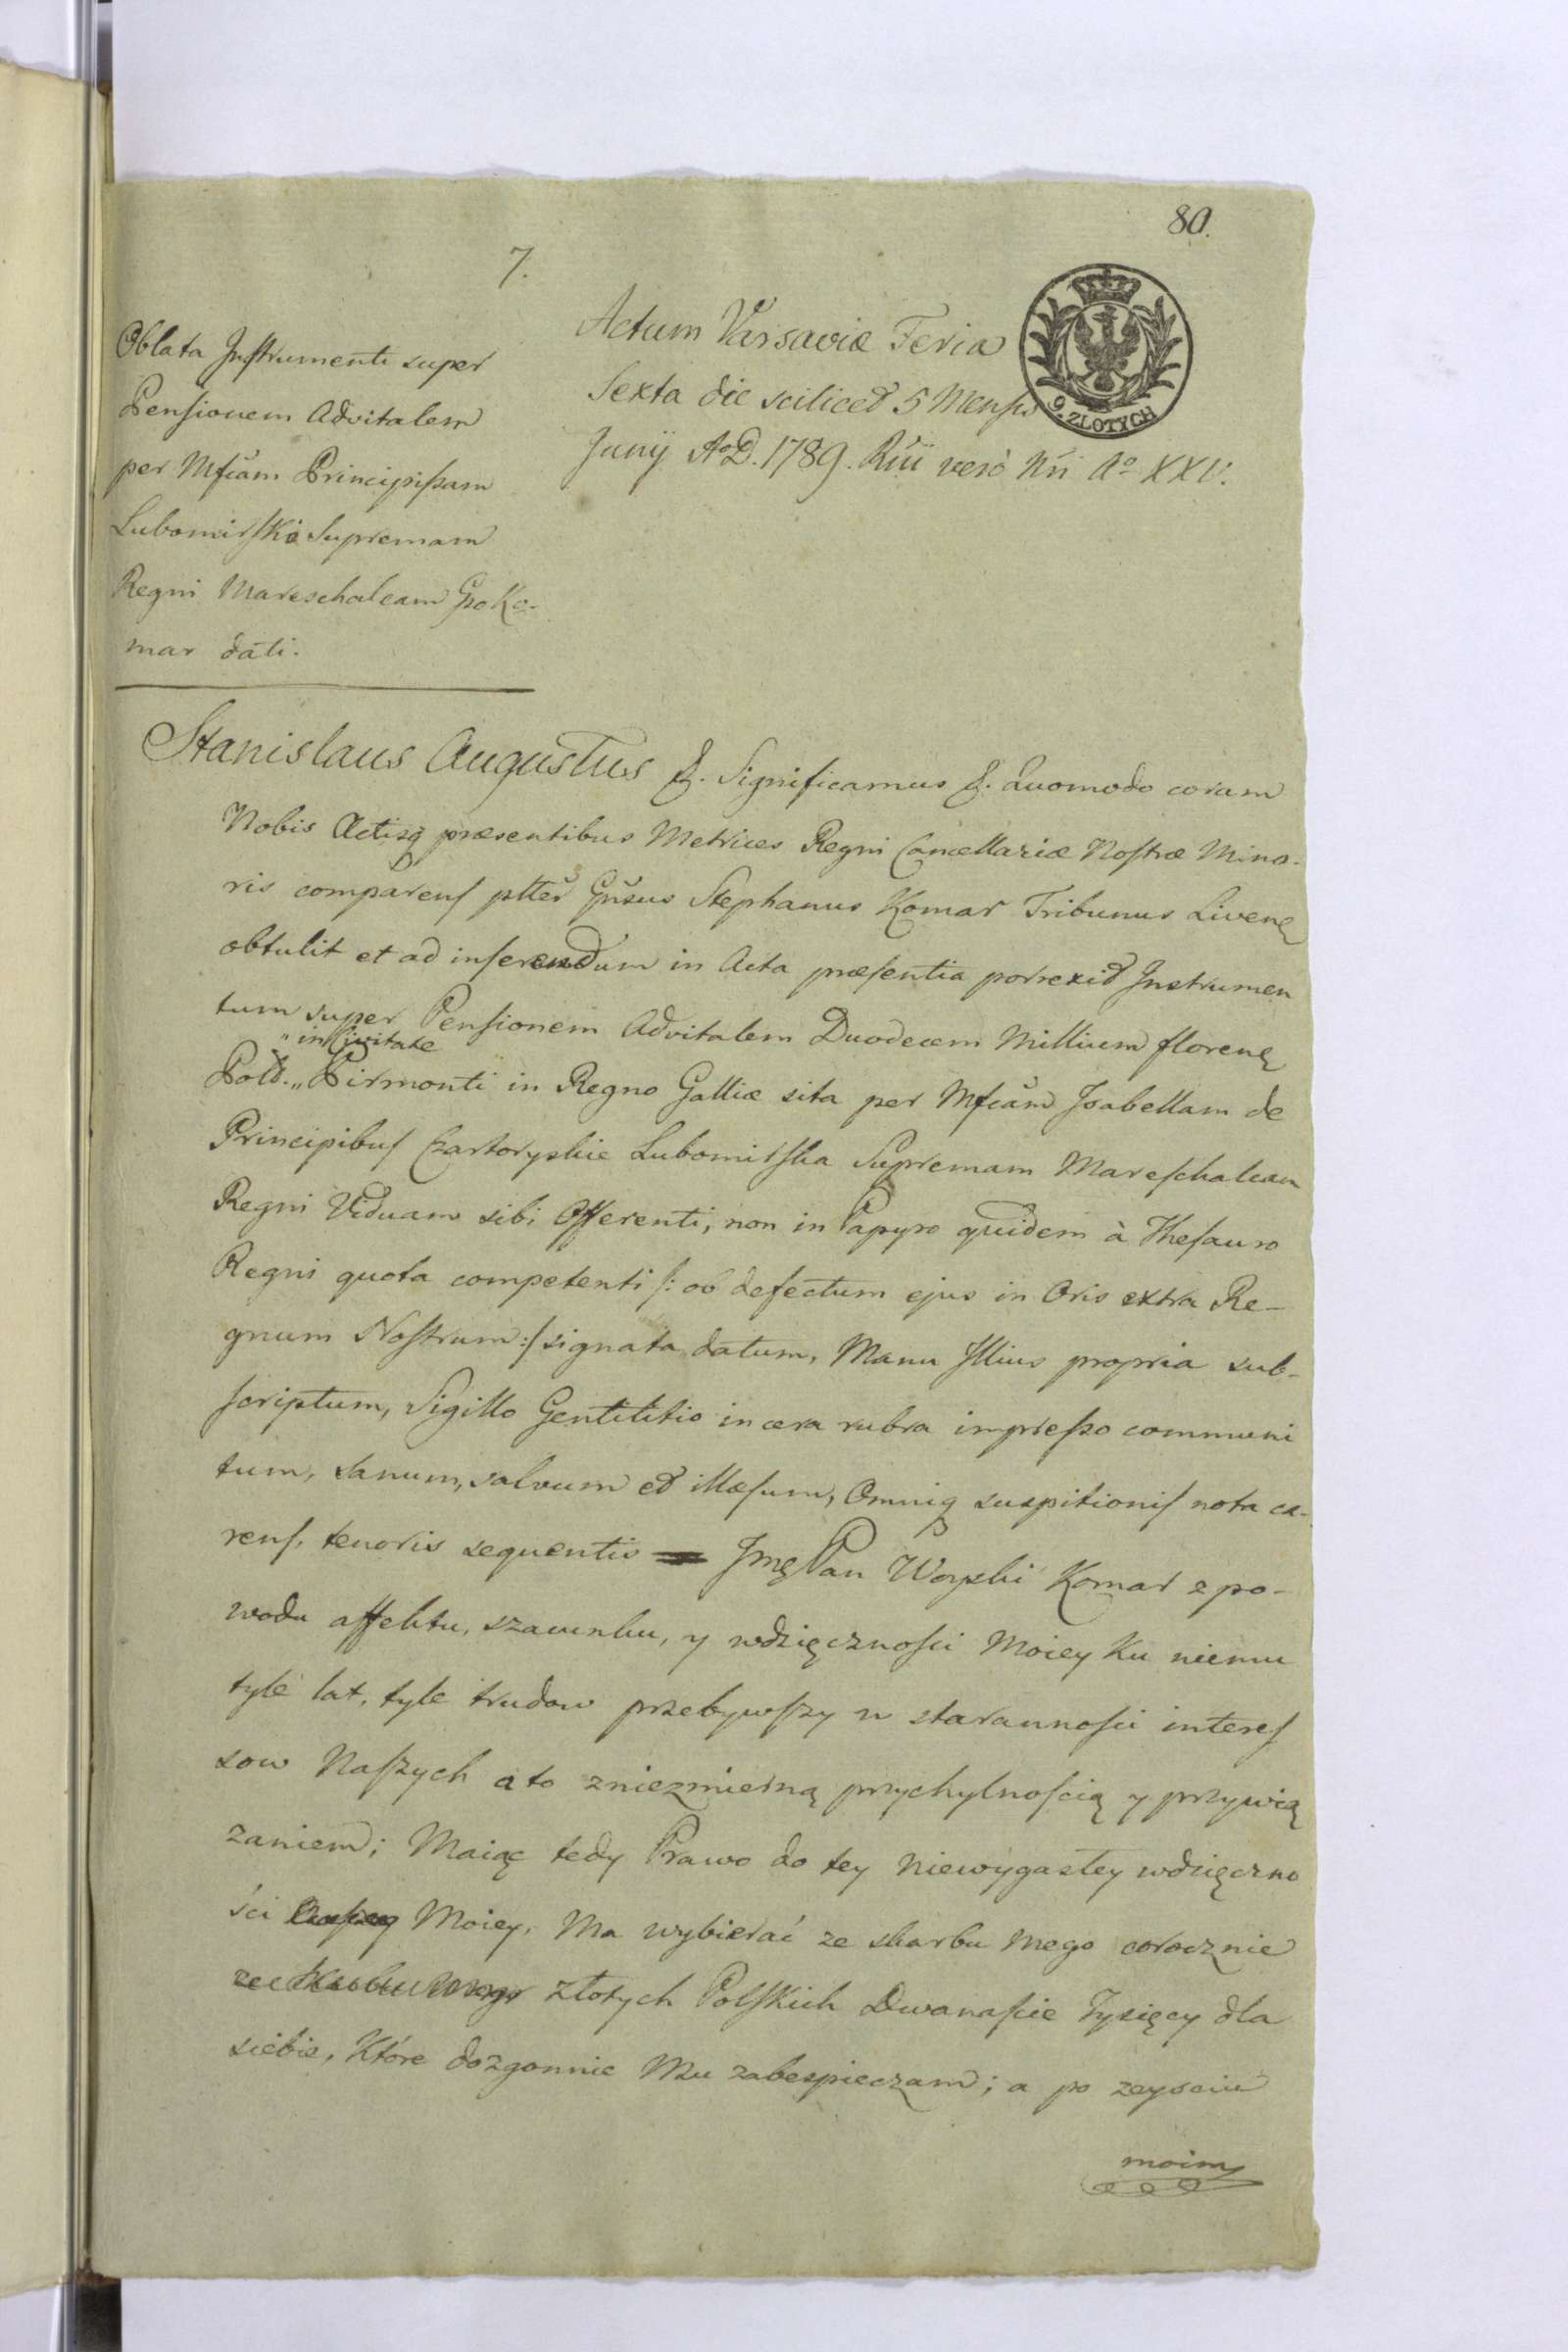 80.
7.
Oblata Instrumenti super
Pensionem Advitalem
per Mfcam Principissam
Lubomirska Supremam
Regni Mareschalcam Gso Ko-
mar dati.
Actum Varsaviæ Feria
Sexta die scilicet 5 Mensis
Junij A.D. 1789. Rńii vero Nri Ao XXV.
9. ZLOTYCH
Stanislaus Augustus &. Significamus &. Quomodo coram
Nobis Actisq præsentibus Metrices Regni Cancellariæ Nostræ Mino-
ris comparens plter Gnsus Stephanus Komar Tribunus Livenę
obtulit et ad inserendum in Acta præsentia porrexit Instrumen
tum super Pensionem Advitalem Duodecem Millium florenę
„in Civitate
Pold. „ Pirmonti in Regno Galliæ sita per Mfcam Isabellam de
Principibus Czartoryskie Lubomirska Supremam Mareschalcam
Regni Viduam sibi Offerenti, non in Papyro quidem à Thesauro
Regni quota competenti /: ob defectum ejus in Oris extra Re-
gnum Nostrum :/ signata datum, Manu Illius propria sub-
scriptum, Sigillo Gentilitio in cera rubra impresso communi
tum, sanum, salvum et illæsum, Omniq suspitionis nota ca-
rens, tenoris sequentis — Jmę Pan Woyski Komar z po-
wodu affektu, szacunku, y wdzięcznosci Moiey Ku niemu
tyle lat, tyle trudow przebywszy w starannosci interes
sow Naszych a to zniezmierną przychylnoscią y przywią
zaniem; Maiąc tedy Prawo do tey niewygasley wdzięczno
ści Moiey, Ma wybierać ze skarbu mego corocznie
złotych Polskich Dwanascie Tysięcy dla
siebie, Które dozgonnie Mu zabespieczam; a po zeysciu
moim